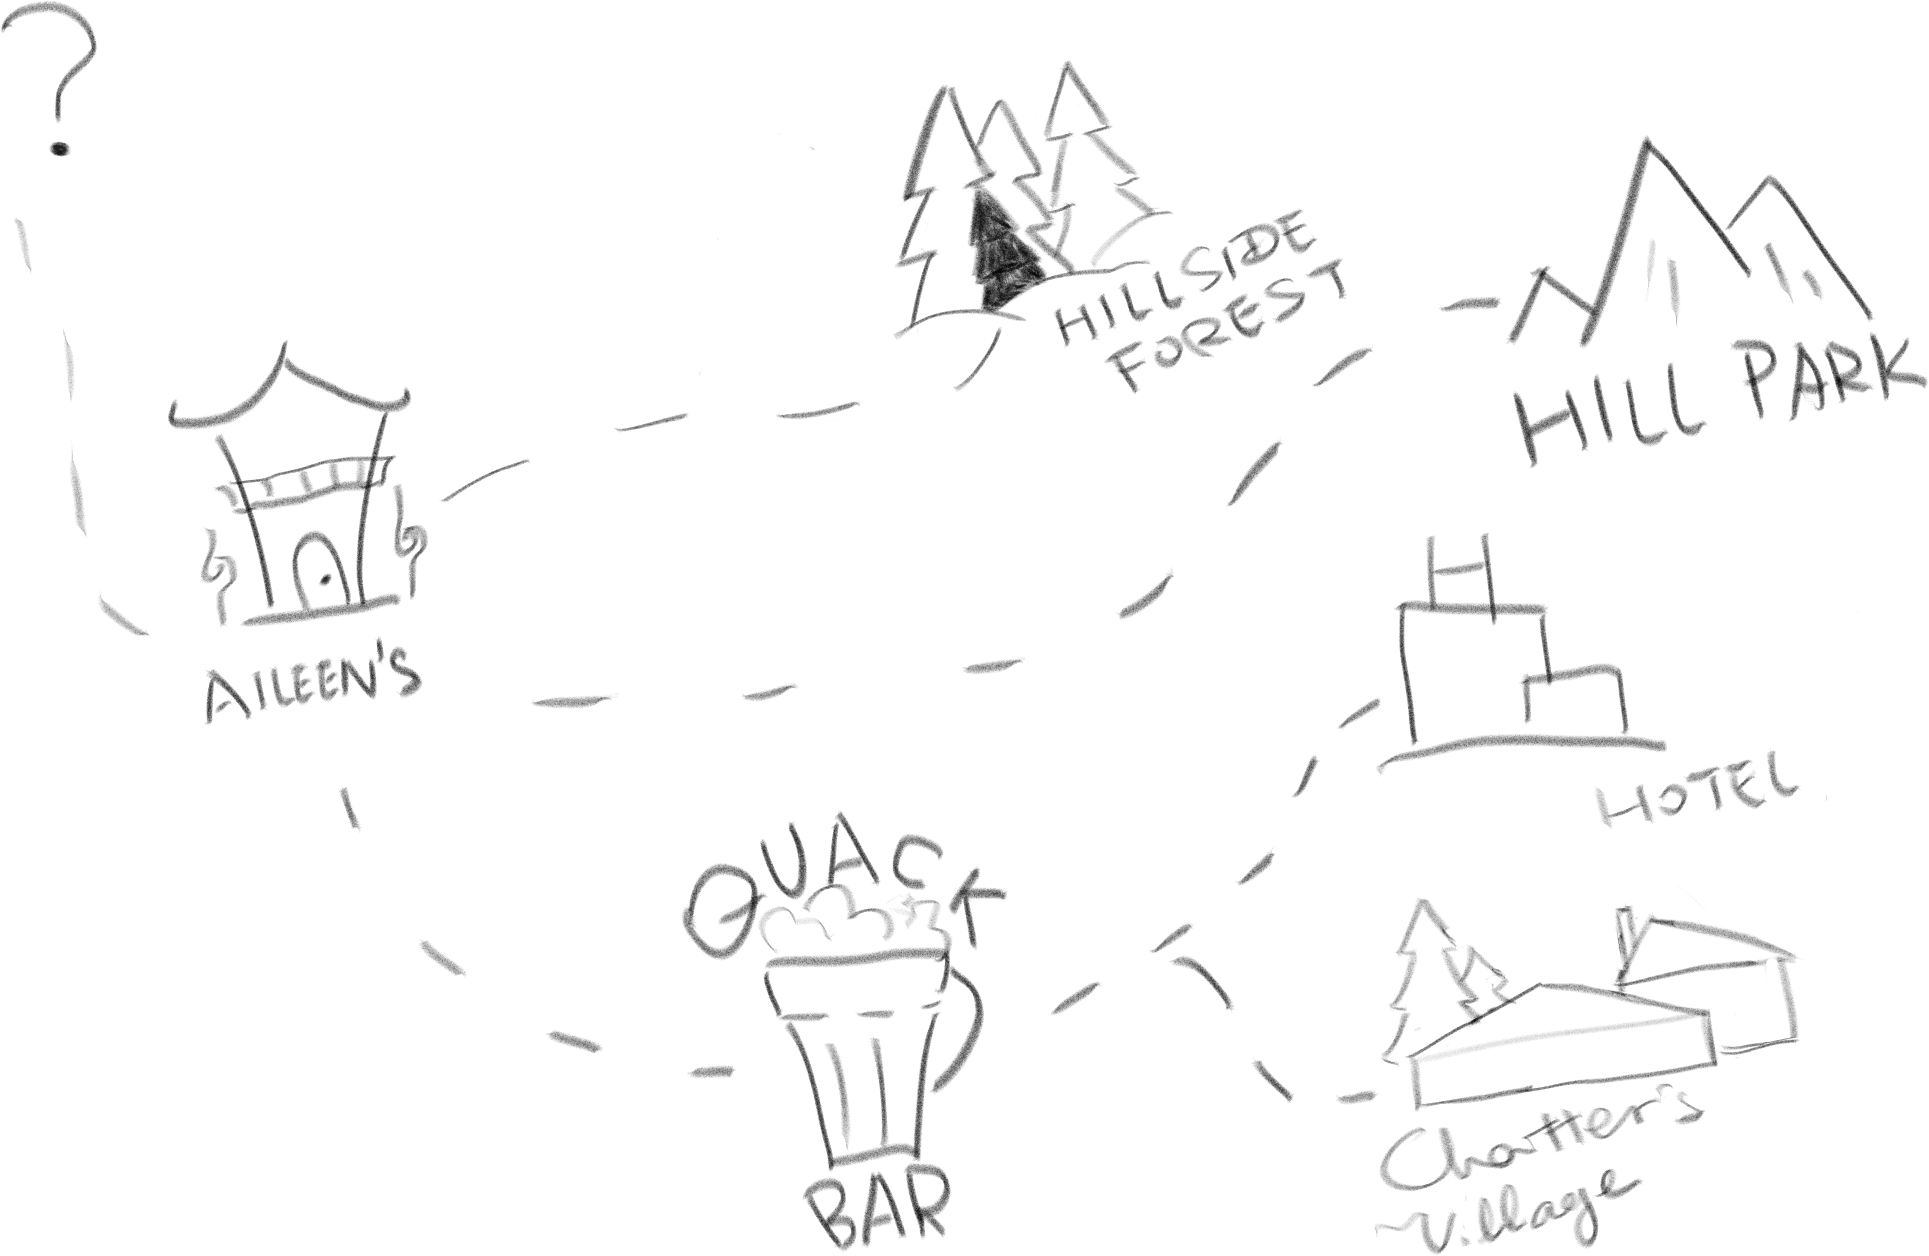 ?
HILLSIDE
FOREST
HILL PARK
AILEEN'S
H
HOTEL
QUACK
BAR
Chatter's
Village